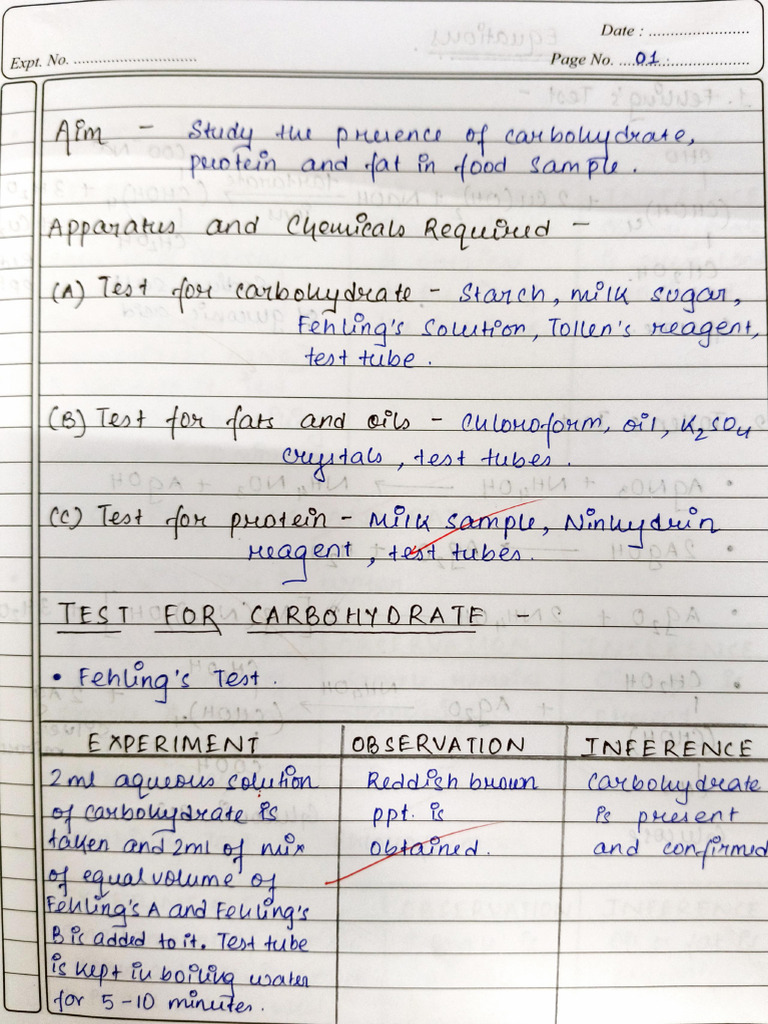 Date : ........................
Expt. No. ................................
Page No. ....01....................
Aim - Study the presence of carbohydrate,
protein and fat in food sample.
Apparatus and Chemicals Required -
(A) Test for carbohydrate - Starch, milk sugar,
Fehling's solution, Tollen's reagent,
test tube.
(B) Test for fats and oils - Chloroform, oil, K2SO4
crystals, test tubes.
(C) Test for protein - Milk sample, Ninhydrin
reagent, test tubes.
TEST FOR CARBOHYDRATE -
• Fehling's Test.
EXPERIMENT OBSERVATION INFERENCE
2ml aqueous solution Reddish brown Carbohydrate
of carbohydrate is ppt. is is present
taken and 2ml of mix obtained. and confirmed
of equal volume of
Fehling's A and Fehling's
B is added to it. Test tube
is kept in boiling water
for 5-10 minutes.